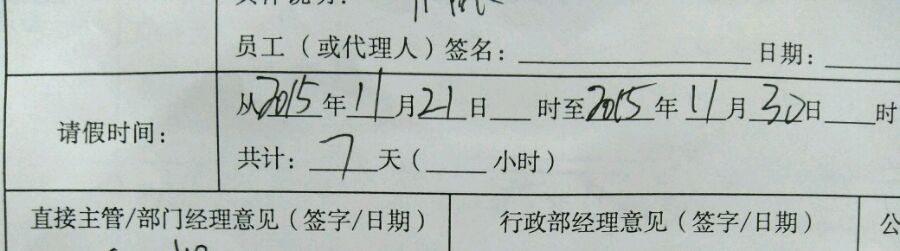 员工（或代理人）签名：____ 日期：____
请假时间：
从2015年11月21日__时至2015年11月30日__时
共计：7天（__小时）
直接主管/部门经理意见（签字/日期） 行政部经理意见（签字/日期） 公